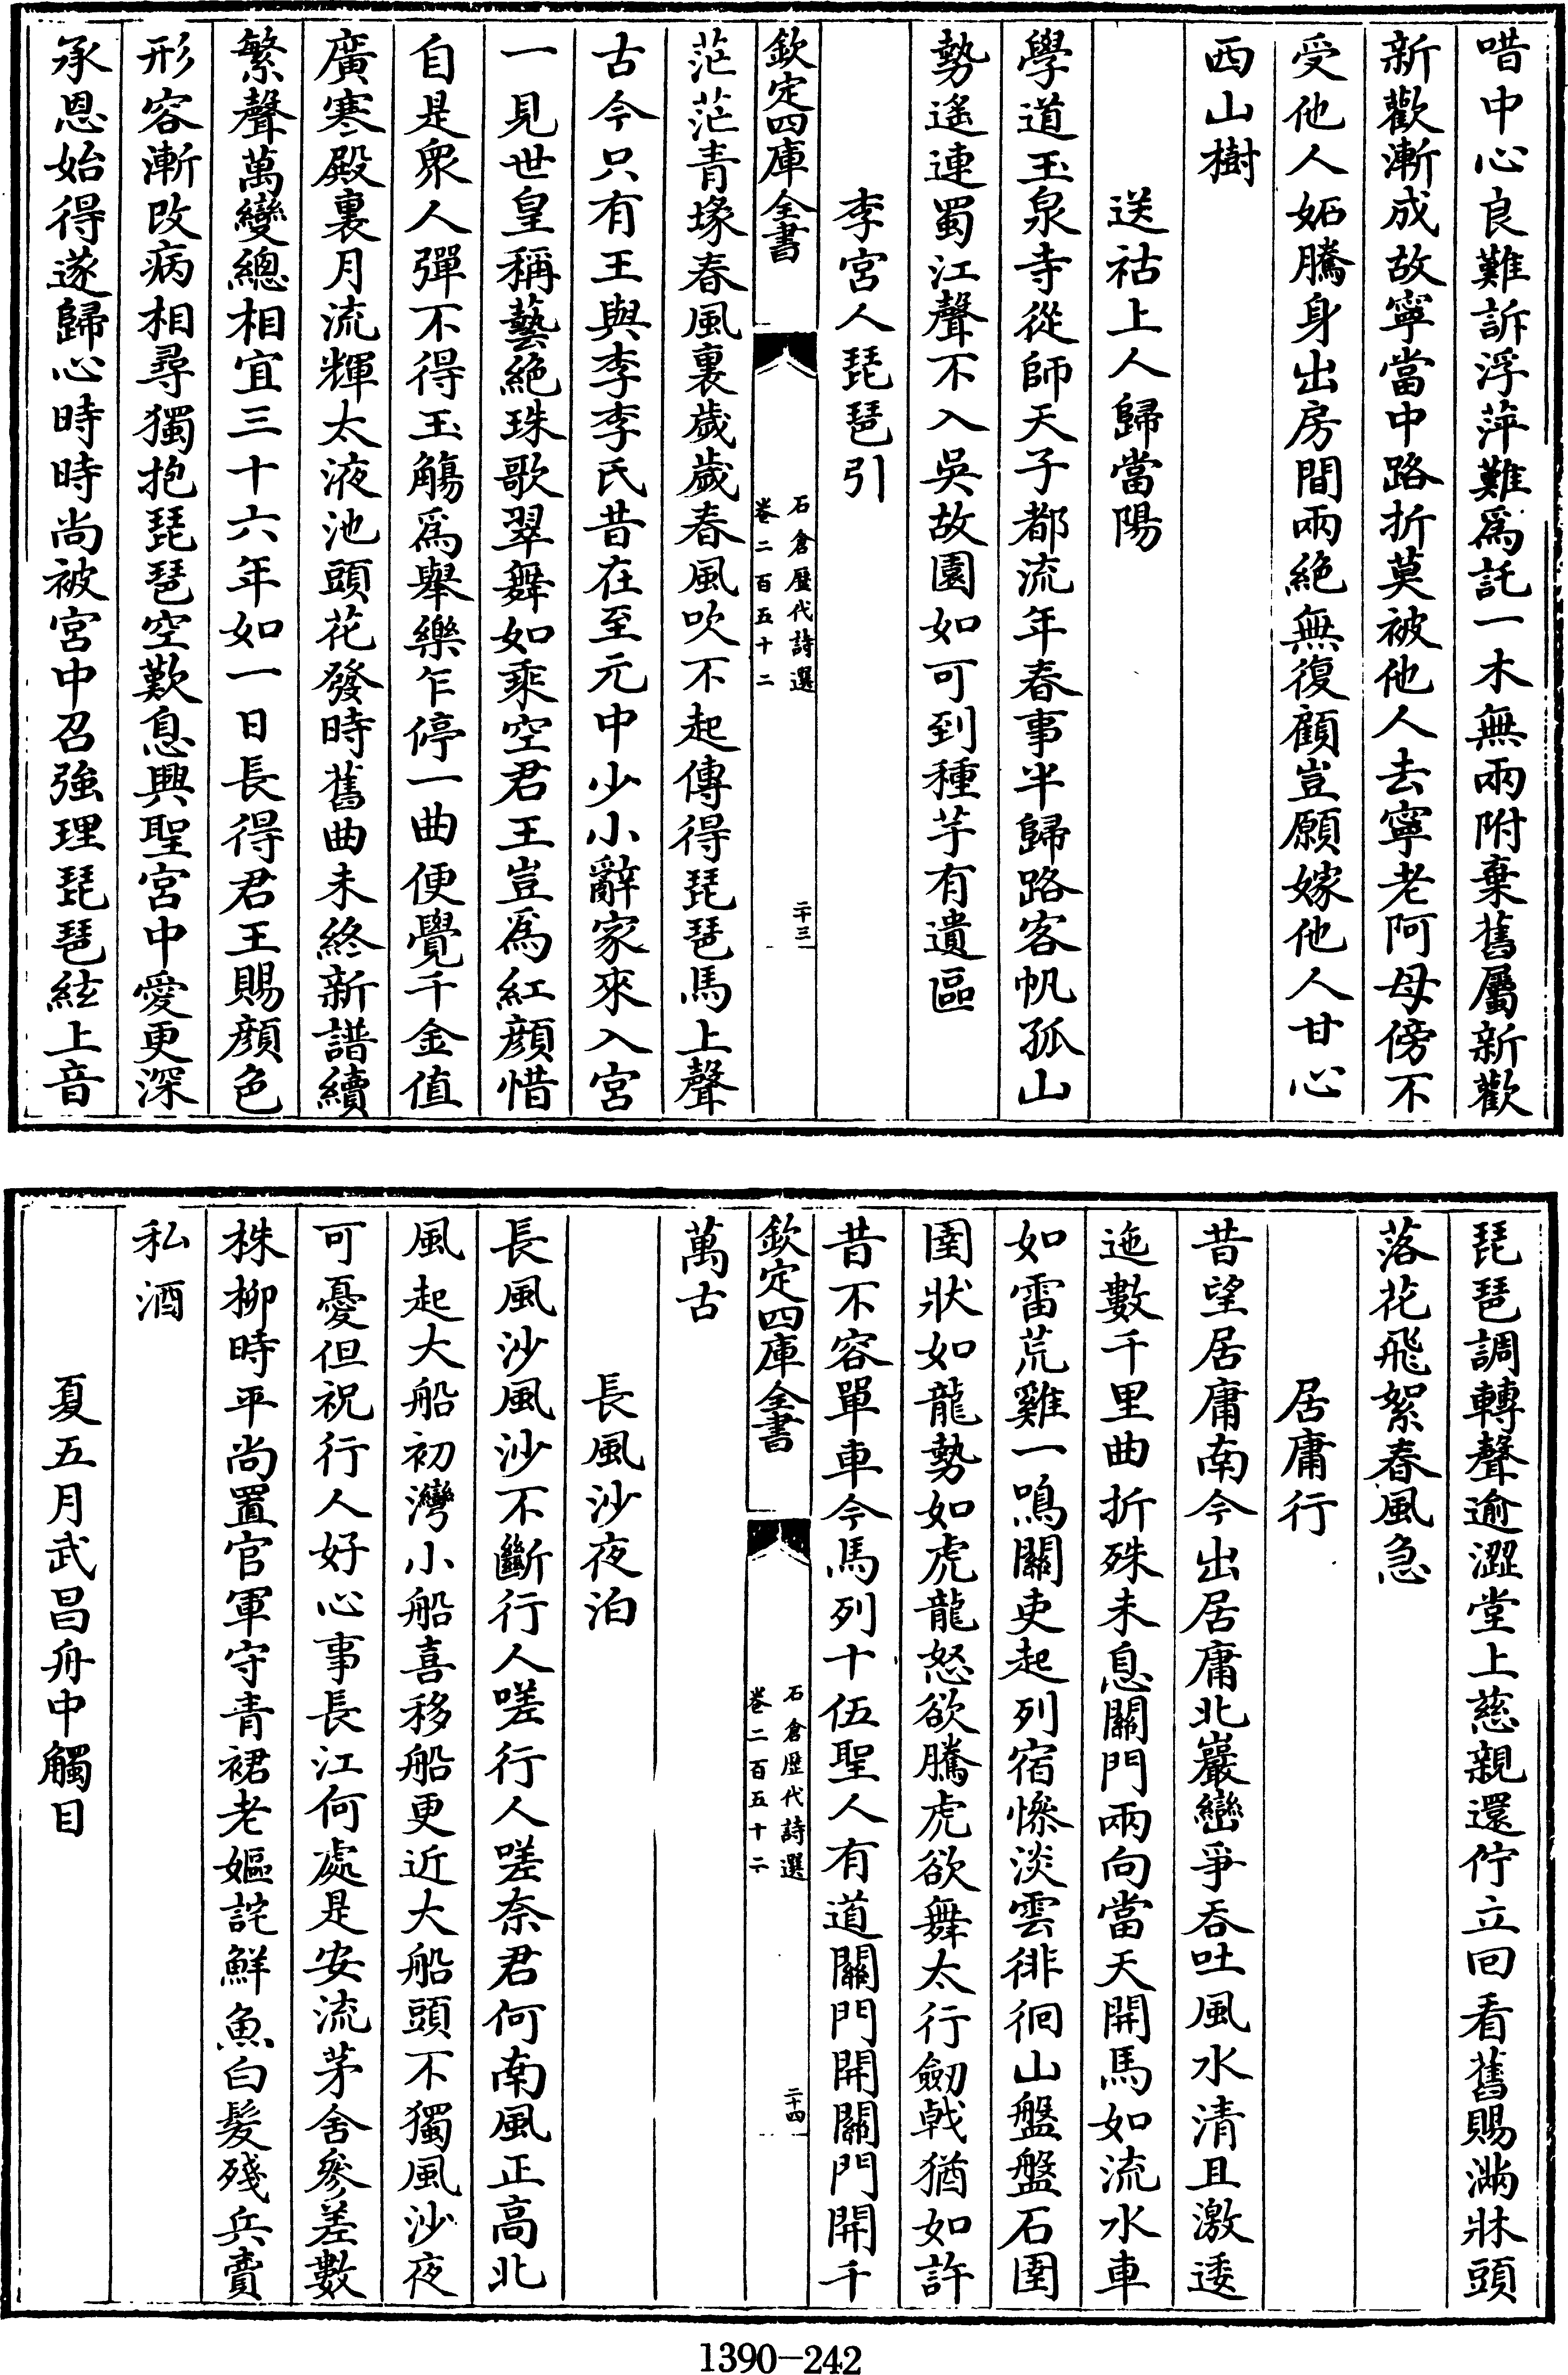 唶中心良難訴浮萍難為託一木無兩附棄舊屬新歡
新歡漸成故寧當中路折莫被他人去寧老阿母傍不
受他人妬騰身出房間兩絕無復顧豈願嫁他人甘心
西山樹
送祜上人歸當陽
學道玉泉寺從師天子都流年春事半歸路客帆孤山
勢遙連蜀江聲不入吳故園如可到種芋有遺區
李宮人琵琶引
欽定四庫全書
石倉歷代詩選
卷二百五十二
二十三
茫茫青塚春風裏歲歲春風吹不起傳得琵琶馬上聲
古今只有王與李李氏昔在至元中少小辭家來入宮
一見世皇稱藝絕珠歌翠舞如乘空君王豈為紅顏惜
自是衆人彈不得玉觴為舉樂乍停一曲便覺千金值
廣寒殿裏月流輝太液池頭花發時舊曲未終新譜續
繁聲萬變總相宜三十六年如一日長得君王賜顏色
形容漸改病相尋獨抱琵琶空歎息興聖宮中愛更深
承恩始得遂歸心時時尚被宮中召強理琵琶絃上音
琵琶調轉聲逾澀堂上慈親還佇立回看舊賜滿牀頭
落花飛絮春風急
居庸行
昔望居庸南今出居庸北巖巒爭吞吐風水清且激逶
迤數千里曲折殊未息關門兩向當天開馬如流水車
如雷荒雞一鳴關吏起列宿慘淡雲徘徊山盤盤石圍
圍狀如龍勢如虎龍怒欲騰虎欲舞太行劒戟猶如許
昔不容單車今馬列十伍聖人有道關門開關門開千
欽定四庫全書
石倉歷代詩選
卷二百五十二
二十四
萬古
長風沙夜泊
長風沙風沙不斷行人嗟行人嗟奈君何南風正高北
風起大船初灣小船喜移船更近大船頭不獨風沙夜
可憂但祝行人好心事長江何處是安流茅舍參差數
株柳時平尚置官軍守青裙老嫗詫鮮魚白髮殘兵賣
私酒
夏五月武昌舟中觸目
1390-242